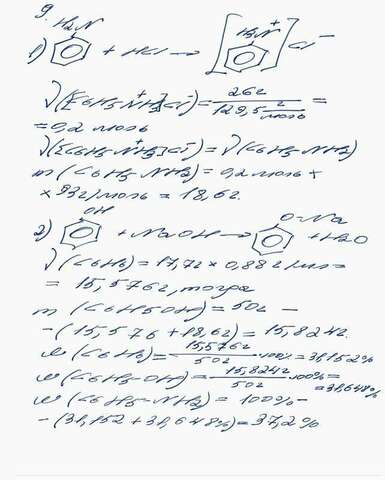 9.
H₂N
1) + HCl → [H₃N⁺] Cl⁻
ν([C6H5N⁺H3]Cl⁻) = 26г / 129,5 г/моль =
= 0,2 моль
ν([C6H5-N⁺H3]Cl⁻) = ν(C6H5-NH2)
m(C6H5-NH2) = 0,2моль ×
× 93г/моль = 18,6г.
OH O-Na
2) + NaOH → + H2O
ν(C6H6) = 17,7г × 0,88г/мл =
= 15,576г, тогда
m(C6H5OH) = 50г -
- (15,576 + 18,6г) = 15,824г.
w(C6H6) = 15,576г / 50г · 100% = 31,152%
w(C6H5-OH) = 15,824г / 50г · 100% =
= 31,648%
w(C6H5-NH2) = 100% -
- (31,152 + 31,648%) = 37,2%